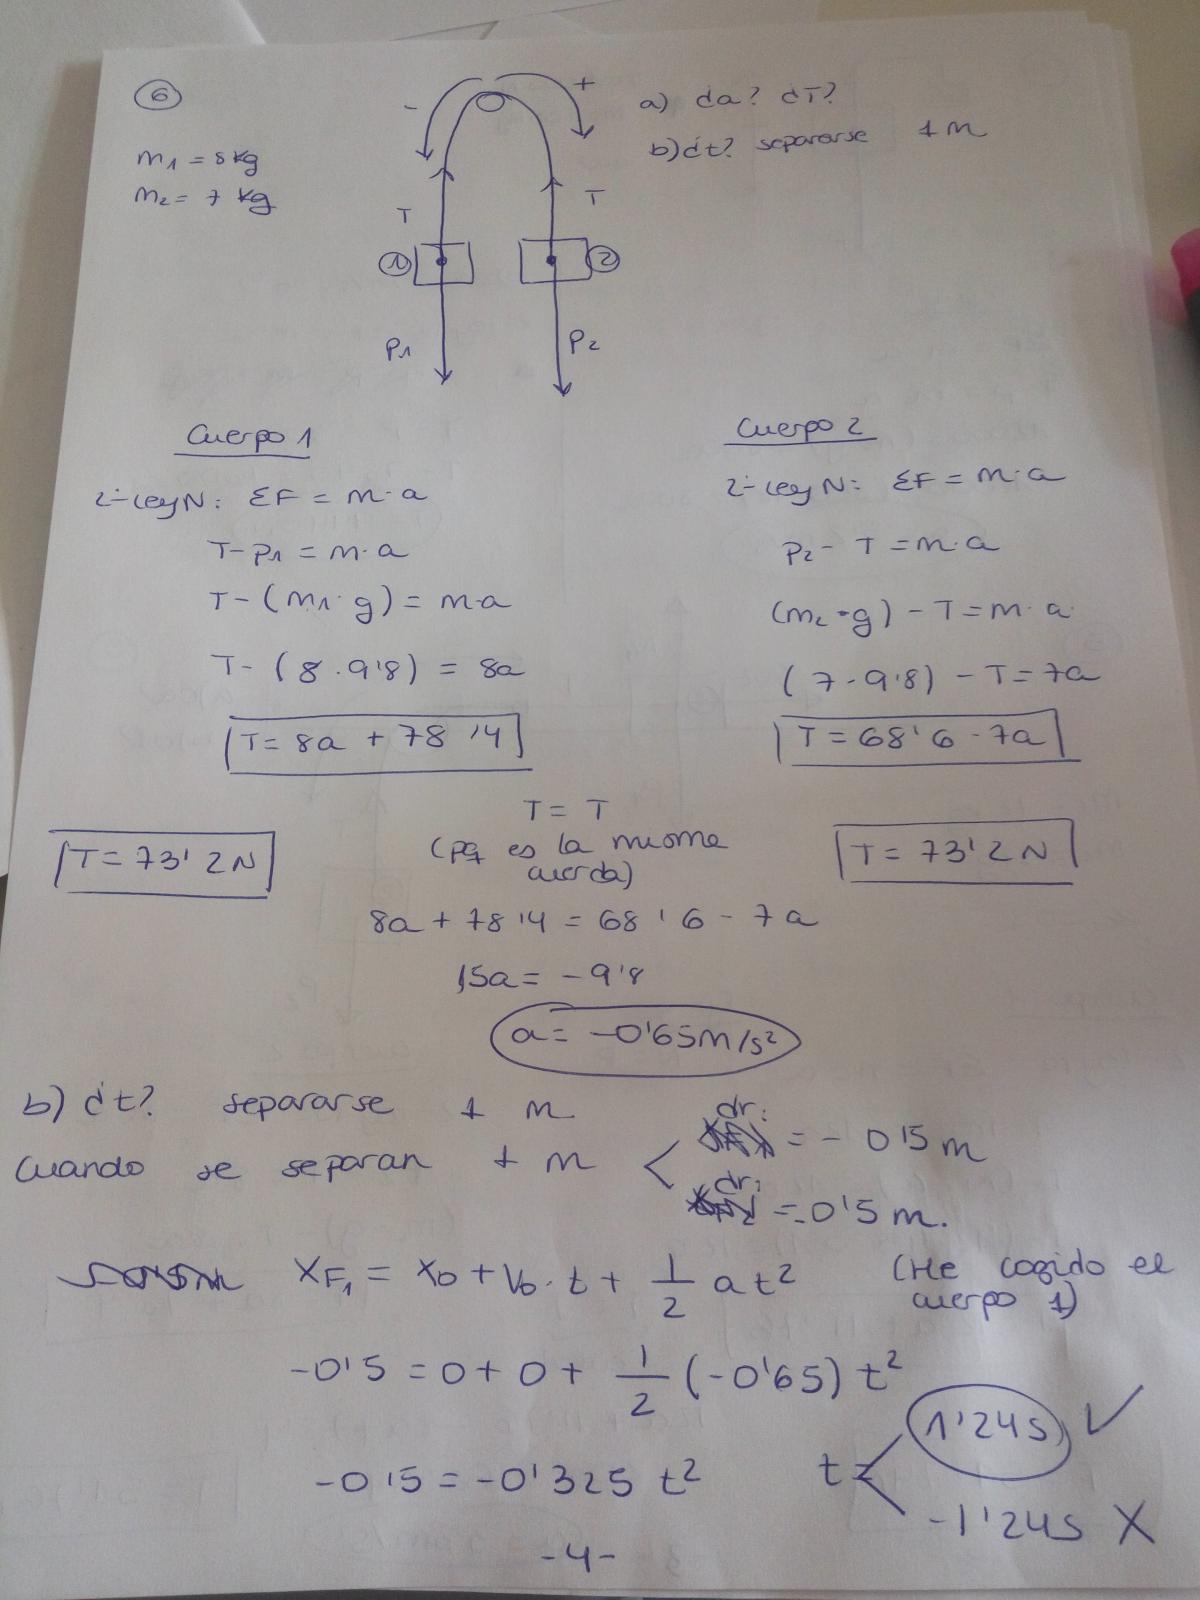 6
m1 = 8kg
m2 = 7 kg
- +
a) ¿a? ¿T?
b) ¿t? separarse 1 m
T T
1 2
P1 P2
Cuerpo 1
2ª Ley N: ΣF = m·a
T - P1 = m·a
T - (m1·g) = m·a
T - (8·9'8) = 8a
T = 8a + 78'4
T = 73'2N
Cuerpo 2
2ª Ley N: ΣF = m·a
P2 - T = m·a
(m2·g) - T = m·a
(7·9'8) - T = 7a
T = 68'6 - 7a
T = 73'2N
T = T
(pq es la misma
cuerda)
8a + 78'4 = 68'6 - 7a
15a = -9'8
a = -0'65m/s²
b) ¿t? separarse 1 m
Cuando se separan 1 m
dr: = -0'5m
dr: =-0'5m.
XF1 = X0 + V0·t + 1/2 at²
(He cogido el
cuerpo 1)
-0'5 = 0 + 0 + 1/2 (-0'65) t²
-0'5 = -0'325 t²
t = 1'24s ✓
-1'24s X
-4-